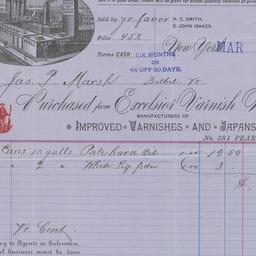 Sold by yr favor
H. C. SMITH.
S. JOHN ISAACS.
Folio 455
Terms CASH
SIX MONTHS
OR
4% OFF 30 DAYS.
New York MAR
Jas. P. Marsh Bethel Vt
Purchased from Excelsior Varnish
MANUFACTURERS OF
IMPROVED VARNISHES AND JAPANS
No. 381 PEAR
Cans 10 galls Pale hard Oil 12 50
" 2 " White 3
Vt Cent
to Agents or Salesmen.
business must be done